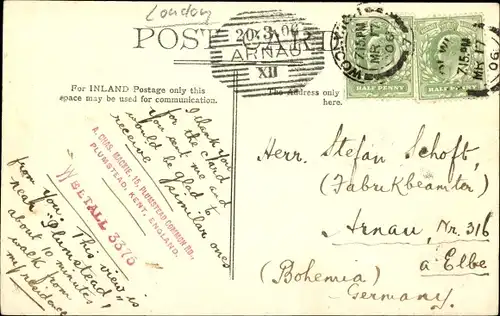 London
POST CARD
20.3.06
ARNAU
XII
WOOLWICH
7.15 PM
MR 17
06
HALF PENNY
7.15 PM
MR 17
06
HALF PENNY
For INLAND Postage only this
space may be used for communication.
The Address only
here.
I thank you
for the card
you sent me and
would be glad to
receive similar ones
A. CHAS. MACKIE, 15, PLUMSTEAD COMMON RD.,
PLUMSTEAD, KENT, ENGLAND.
WELTALL 3375
from you. This view is
near "Plumstead",
about 10 minutes
walk from
my residence
Herr. Stefan Schoft,
(Fabrikbeamter)
Arnau, Nr. 316
a Elbe
(Bohemia)
Germany.